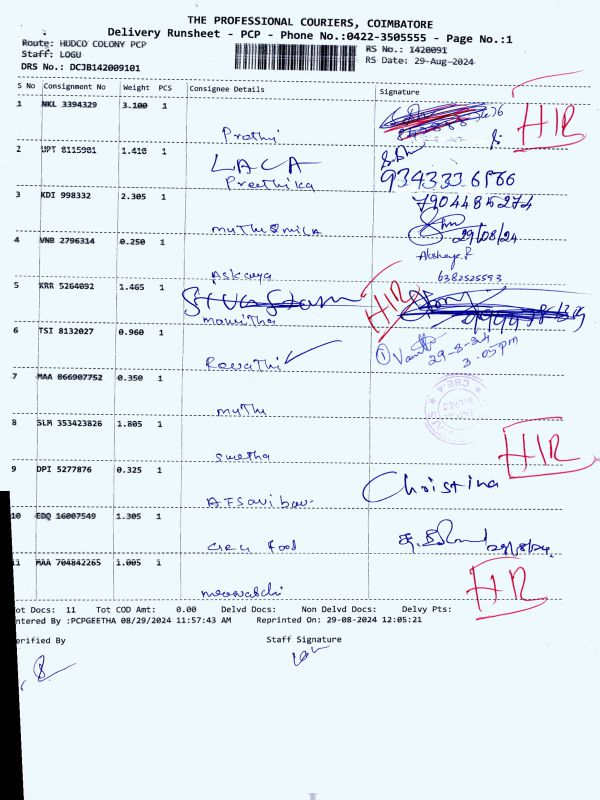 THE PROFESSIONAL COURIERS, COIMBATORE
Delivery Runsheet - PCP - Phone No.:0422-3505555 - Page No.:1
Route: HUDCO COLONY PCP
Staff: LOGU
DRS No.: DCJB142009101
RS No.: 1420091
RS Date: 29-Aug-2024
S No Consignment No Weight PCS Consignee Details Signature
1 NKL 3394329 3.100 1
HIR
Prethi
2 UPT 8115901 1.410 1
LACA
Preethika
9343336566
3 KDI 998332 2.305 1
7904485274
29/08/24
4 VNB 2796314 0.250 1
Akshaya.P
Askaya
6382525593
5 KRR 5264092 1.465 1
HIR
6 TSI 8132027 0.960 1
Revathi
29-8-24
3.05pm
7 MAA 866907752 0.350 1
muthu
8 SLM 353423826 1.805 1
HIR
swetha
9 DPI 5277876 0.325 1
Christina
10 EDQ 16007549 1.305 1
Food
29/8/24
11 MAA 704842265 1.005 1
HIR
meenatchi
ot Docs: 11 Tot COD Amt: 0.00 Delvd Docs: Non Delvd Docs: Delvy Pts:
ntered By :PCPGEETHA 08/29/2024 11:57:43 AM Reprinted On: 29-08-2024 12:05:21
erified By Staff Signature